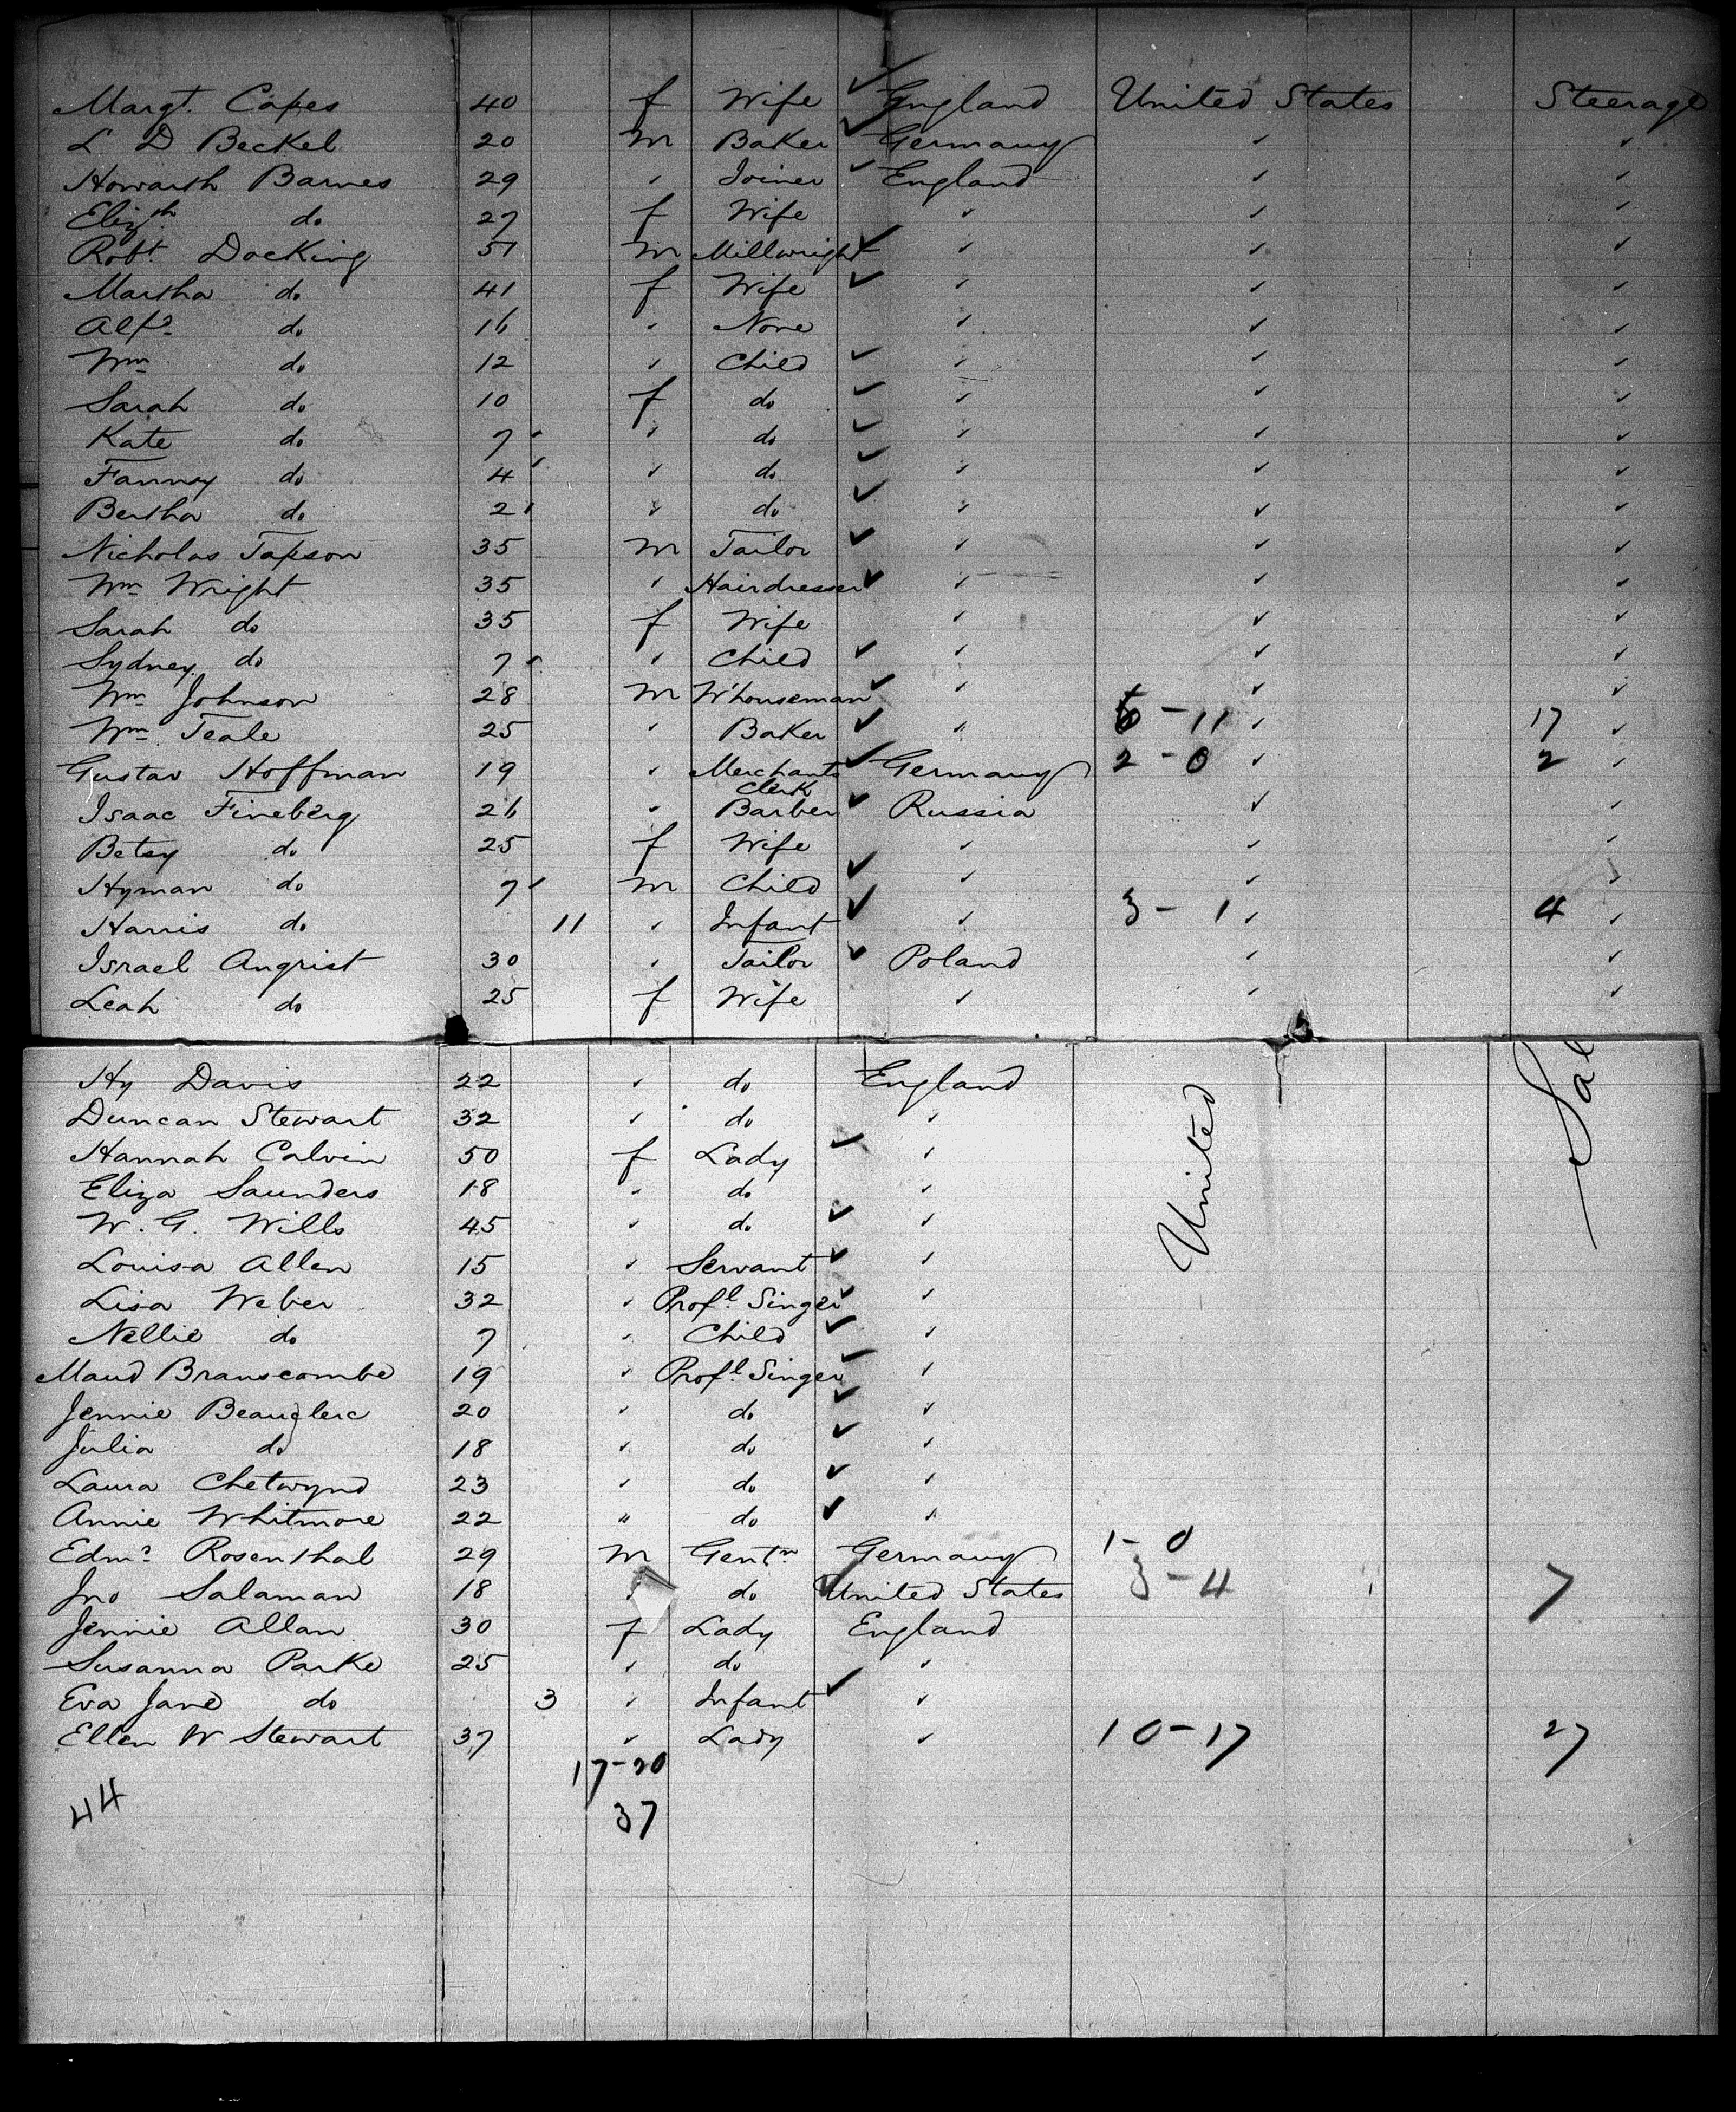 Margt. Capes 40 f Wife ✓ England United States Steerage
L D Beckel 20 m Baker ✓ Germany ✓ ✓
Howarth Barnes 29 ✓ Joiner ✓ England ✓ ✓
Elizth. do 27 f Wife ✓ ✓ ✓
Robt. Docking 51 m Millwright ✓ ✓ ✓ ✓
Martha do 41 f Wife ✓ ✓ ✓ ✓
Alfd do 16 ✓ None ✓ ✓ ✓
Wm do 12 ✓ Child ✓ ✓ ✓ ✓
Sarah do 10 f do ✓ ✓ ✓ ✓
Kate do 7 ✓ do ✓ ✓ ✓ ✓
Fanny do 4 ✓ do ✓ ✓ ✓ ✓
Bertha do 2 ✓ do ✓ ✓ ✓ ✓
Nicholas Tapson 35 m Tailor ✓ ✓ ✓ ✓
Wm Wright 35 ✓ Hairdresser ✓ ✓ ✓ ✓
Sarah do 35 f Wife ✓ ✓ ✓
Sydney do 7 ✓ Child ✓ ✓ ✓ ✓
Wm Johnson 28 m W'houseman ✓ ✓ ✓ ✓
Wm Teale 25 ✓ Baker ✓ ✓ 6 - 11 ✓ 17 ✓
Gustav Hoffman 19 ✓ Merchants ✓ Germany 2 - 0 ✓ 2 ✓
Clerk
Isaac Fineberg 26 ✓ Barber ✓ Russia ✓ ✓
Betsy do 25 f Wife ✓ ✓ ✓
Hyman do 7 m Child ✓ ✓ ✓ ✓
Harris do 11 ✓ Infant ✓ ✓ 3 - 1 ✓ 4 ✓
Israel Angrist 30 ✓ Tailor ✓ Poland ✓ ✓
Leah do 25 f Wife ✓ ✓ ✓
Hy Davis 22 ✓ do England United Sal
Duncan Stewart 32 ✓ do ✓
Hannah Calvin 50 f Lady ✓ ✓
Eliza Saunders 18 ✓ do ✓
W. G. Wills 45 ✓ do ✓ ✓
Louisa Allen 15 ✓ Servant ✓ ✓
Lisa Weber 32 ✓ Profl. Singer ✓ ✓
Nellie do 7 ✓ Child ✓ ✓
Maud Branscombe 19 ✓ Profl. Singer ✓ ✓
Jennie Beauclerc 20 ✓ do ✓ ✓
Julia do 18 ✓ do ✓ ✓
Laura Chetwynd 23 ✓ do ✓ ✓
Annie Whitmore 22 " do ✓ ✓
Edmd Rosenthal 29 m Gentn Germany 1 - 0
Jno Salaman 18 ✓ do ✓ United States 3 - 4 7
Jennie Allan 30 f Lady England
Susanna Parke 25 ✓ do ✓
Eva Jane do 3 ✓ Infant ✓ ✓
Ellen W Stewart 37 ✓ Lady ✓ 10 - 17 27
17-20
44 37